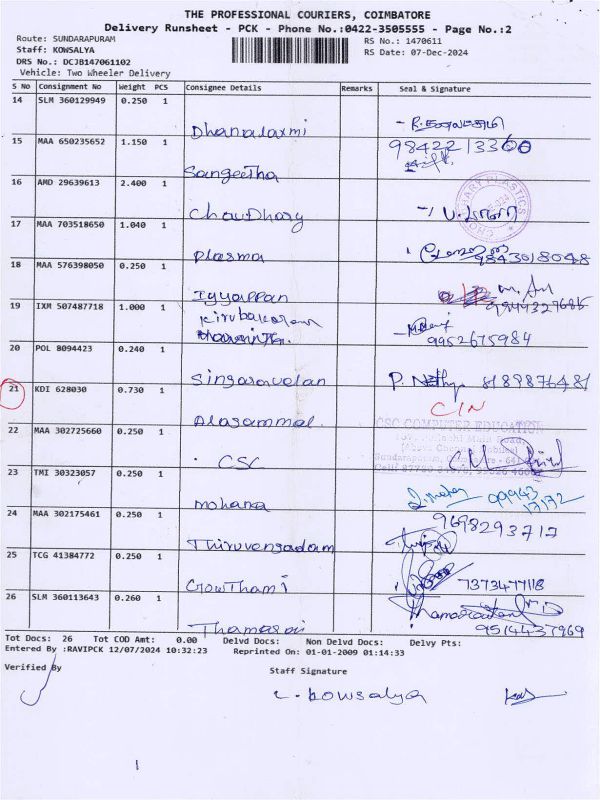 THE PROFESSIONAL COURIERS, COIMBATORE
Delivery Runsheet - PCK - Phone No.:0422-3505555 - Page No.:2
Route: SUNDARAPURAM
RS No.: 1470611
Staff: KOWSALYA
RS Date: 07-Dec-2024
DRS No.: DCJB147061102
Vehicle: Two Wheeler Delivery
S No Consignment No Weight PCS Consignee Details Remarks Seal & Signature
14 SLM 360129949 0.250 1
Dhanalaxmi
15 MAA 650235652 1.150 1
9842213360
Sangeetha
16 AMD 29639613 2.400 1
Choudhary
17 MAA 703518650 1.040 1
Plasma 9843018048
18 MAA 576398050 0.250 1
Iyyappan
9944329686
19 IXM 507487718 1.000 1
Kirubakaran
9952675984
20 POL 8094423 0.240 1
Singaravelan P. Nithya 8189876481
21 KDI 628030 0.730 1
C/N
Alagammal
22 MAA 302725660 0.250 1
CSC COMPUTER EDUCATION
CSC
23 TMI 30323057 0.250 1
99943 17172
Mohana
24 MAA 302175461 0.250 1
9698293717
Thiruvengadam
25 TCG 41384772 0.250 1
Gowthami 7373477118
26 SLM 360113643 0.260 1
Thamarai 9514437969
Tot Docs: 26 Tot COD Amt: 0.00 Delvd Docs: Non Delvd Docs: Delvy Pts:
Entered By :RAVIPCK 12/07/2024 10:32:23 Reprinted On: 01-01-2009 01:14:33
Verified By
Staff Signature
C. Kowsalya